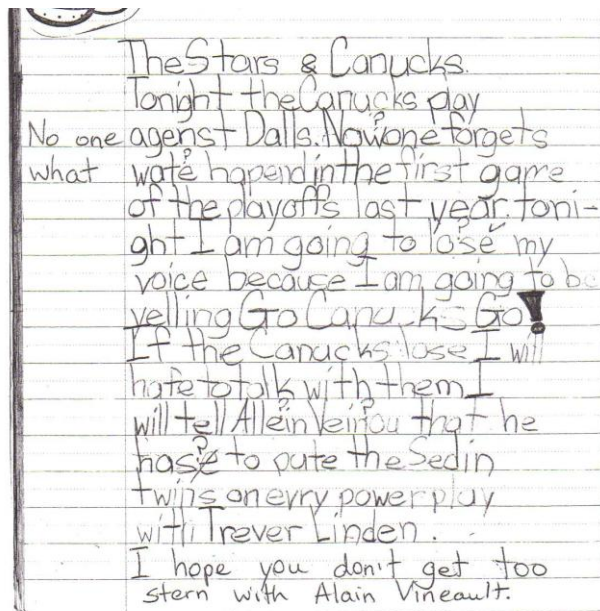 The Stars & Canucks.
Tonight the Canucks play
No one agenst Dalls. Nowone forgets
what wate hapend in the first game
of the playoffs last year. toni-
ght I am going to lose my
voice because I am going to be
yelling Go Canucks Go!
If the Canucks lose I will
hafe to talk with them I
will tell Allein Veinou that he
hase to pute the Sedin
twins on evry power play
with Trever Linden.
I hope you don't get too
stern with Alain Vineault.